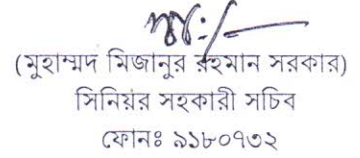 (মুহাম্মদ মিজানুর রহমান সরকার)
সিনিয়র সহকারী সচিব
ফোনঃ ৯১৮০৭৩২